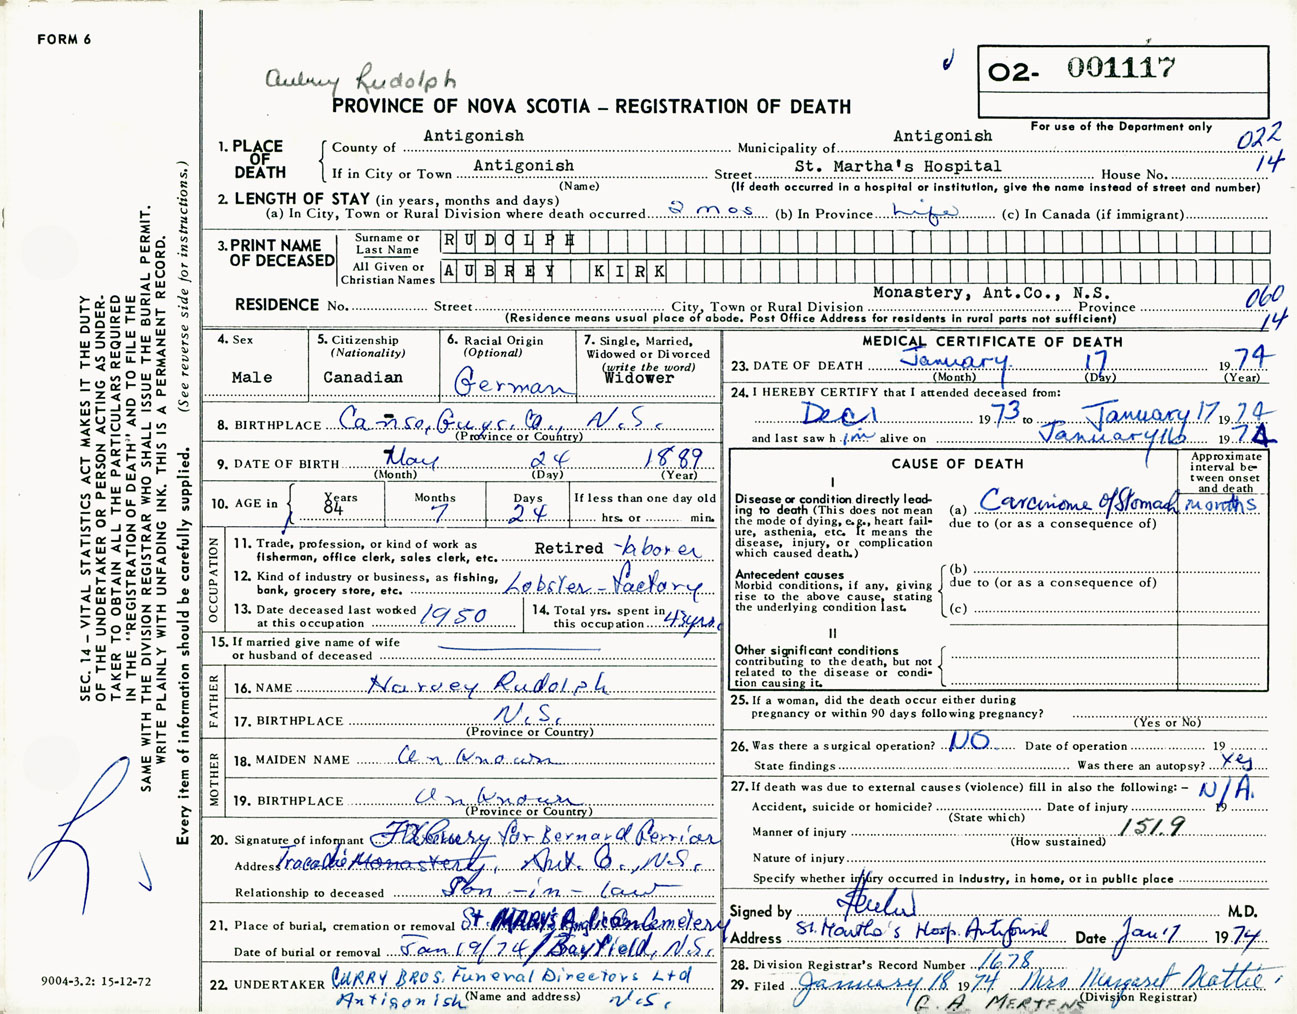 FORM 6
Aubrey Rudolph
O2- 001117
PROVINCE OF NOVA SCOTIA – REGISTRATION OF DEATH
For use of the Department only
022
14
1. PLACE OF DEATH
County of Antigonish Municipality of Antigonish
If in City or Town Antigonish Street St. Martha's Hospital House No.
(Name) (If death occurred in a hospital or institution, give the name instead of street and number)
2. LENGTH OF STAY (in years, months and days)
(a) In City, Town or Rural Division where death occurred 2 mos (b) In Province Life (c) In Canada (if immigrant)
3. PRINT NAME OF DECEASED
Surname or Last Name RUDOLPH
All Given or Christian Names AUBREY KIRK
Monastery, Ant.Co., N.S.
RESIDENCE No. Street City, Town or Rural Division Province
(Residence means usual place of abode. Post Office Address for residents in rural parts not sufficient)
060
14
4. Sex
Male
5. Citizenship
(Nationality)
Canadian
6. Racial Origin
(Optional)
German
7. Single, Married,
Widowed or Divorced
(write the word)
Widower
8. BIRTHPLACE Canso, Guys. Co., N.S.
(Province or Country)
9. DATE OF BIRTH May 24 1889
(Month) (Day) (Year)
10. AGE in
Years Months Days If less than one day old
84 7 24 hrs. or min.
OCCUPATION
11. Trade, profession, or kind of work as
fisherman, office clerk, sales clerk, etc. Retired laborer
12. Kind of industry or business, as fishing,
bank, grocery store, etc. Lobster - Factory
13. Date deceased last worked
at this occupation 1950
14. Total yrs. spent in
this occupation 43 yrs.
15. If married give name of wife
or husband of deceased
FATHER
16. NAME Harvey Rudolph
17. BIRTHPLACE N.S.
(Province or Country)
MOTHER
18. MAIDEN NAME Unknown
19. BIRTHPLACE Unknown
(Province or Country)
20. Signature of informant for Bernard Perrior
Address Tracadie Monastery, Ant. Co., N.S.
Relationship to deceased Son-in-law
21. Place of burial, cremation or removal St. MARY'S Anglican Cemetery
Date of burial or removal Jan 19/74 / Bayfield, N.S.
22. UNDERTAKER CURRY BROS. Funeral Directors Ltd
(Name and address)
Antigonish N.S.
MEDICAL CERTIFICATE OF DEATH
23. DATE OF DEATH January 17 1974
(Month) (Day) (Year)
24. I HEREBY CERTIFY that I attended deceased from:
Dec 1 1973 to January 17 1974
and last saw him alive on January 16 1974
CAUSE OF DEATH
Approximate
interval be-
tween onset
and death
I
Disease or condition directly lead-
ing to death (This does not
mean the mode of dying, e.g., heart fail-
ure, asthenia, etc. It means the
disease, injury, or complication
which caused death.)
(a) Carcinome of Stomach months
due to (or as a consequence of)
Antecedent causes
Morbid conditions, if any, giving
rise to the above cause, stating
the underlying condition last.
(b)
due to (or as a consequence of)
(c)
II
Other significant conditions
contributing to the death, but not
related to the disease or condi-
tion causing it.
25. If a woman, did the death occur either during
pregnancy or within 90 days following pregnancy?
(Yes or No)
26. Was there a surgical operation? NO Date of operation 19
State findings Was there an autopsy? Yes
27. If death was due to external causes (violence) fill in also the following: – N/A.
Accident, suicide or homicide? Date of injury 19
(State which)
Manner of injury 151.9
(How sustained)
Nature of injury
Specify whether injury occurred in industry, in home, or in public place
Signed by M.D.
Address St. Martha's Hosp. Antigonish Date Jan 17 1974
28. Division Registrar's Record Number 1678
29. Filed January 18 1974 Mrs Margaret Mattie
(Division Registrar)
G. A. MERTENS
SEC. 14 – VITAL STATISTICS ACT MAKES IT THE DUTY
OF THE UNDERTAKER OR PERSON ACTING AS UNDER-
TAKER TO OBTAIN ALL THE PARTICULARS REQUIRED
IN THE "REGISTRATION OF DEATH" AND TO FILE THE
SAME WITH THE DIVISION REGISTRAR WHO SHALL ISSUE THE BURIAL PERMIT.
WRITE PLAINLY WITH UNFADING INK. THIS IS A PERMANENT RECORD.
Every item of information should be carefully supplied. (See reverse side for instructions.)
9004-3.2: 15-12-72